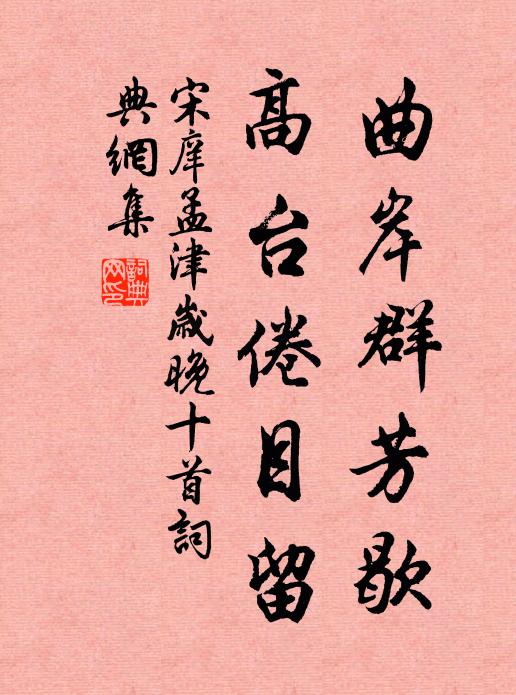 曲岸群芳歇
高台倦目留
宋庠孟津歲晚十首詞
典網集
詞典网印